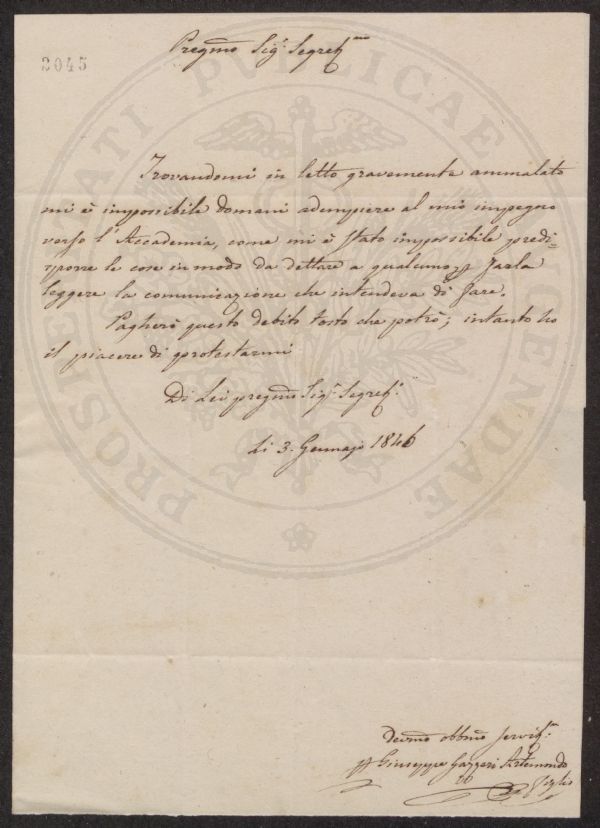 2045
Pregmo Sigr Segretrio
Trovandomi in letto gravemente ammalato
mi è impossibile domani adempiere al mio impegno
verso l'Accademia, come mi è stato impossibile predi=
sporre le cose in modo da dettare a qualcuno p farla
leggere la comunicazione che intendeva di fare.
Pagherò questo debito tosto che potrò; intanto ho
il piacere di protestarmi
Di Lei pregmo Sigr Segret.
Li 3. Gennajo 1846
Devmo obbmo servitr
Giuseppe Gazzeri
PROSPERITATI PUBLICAE AUGENDAE